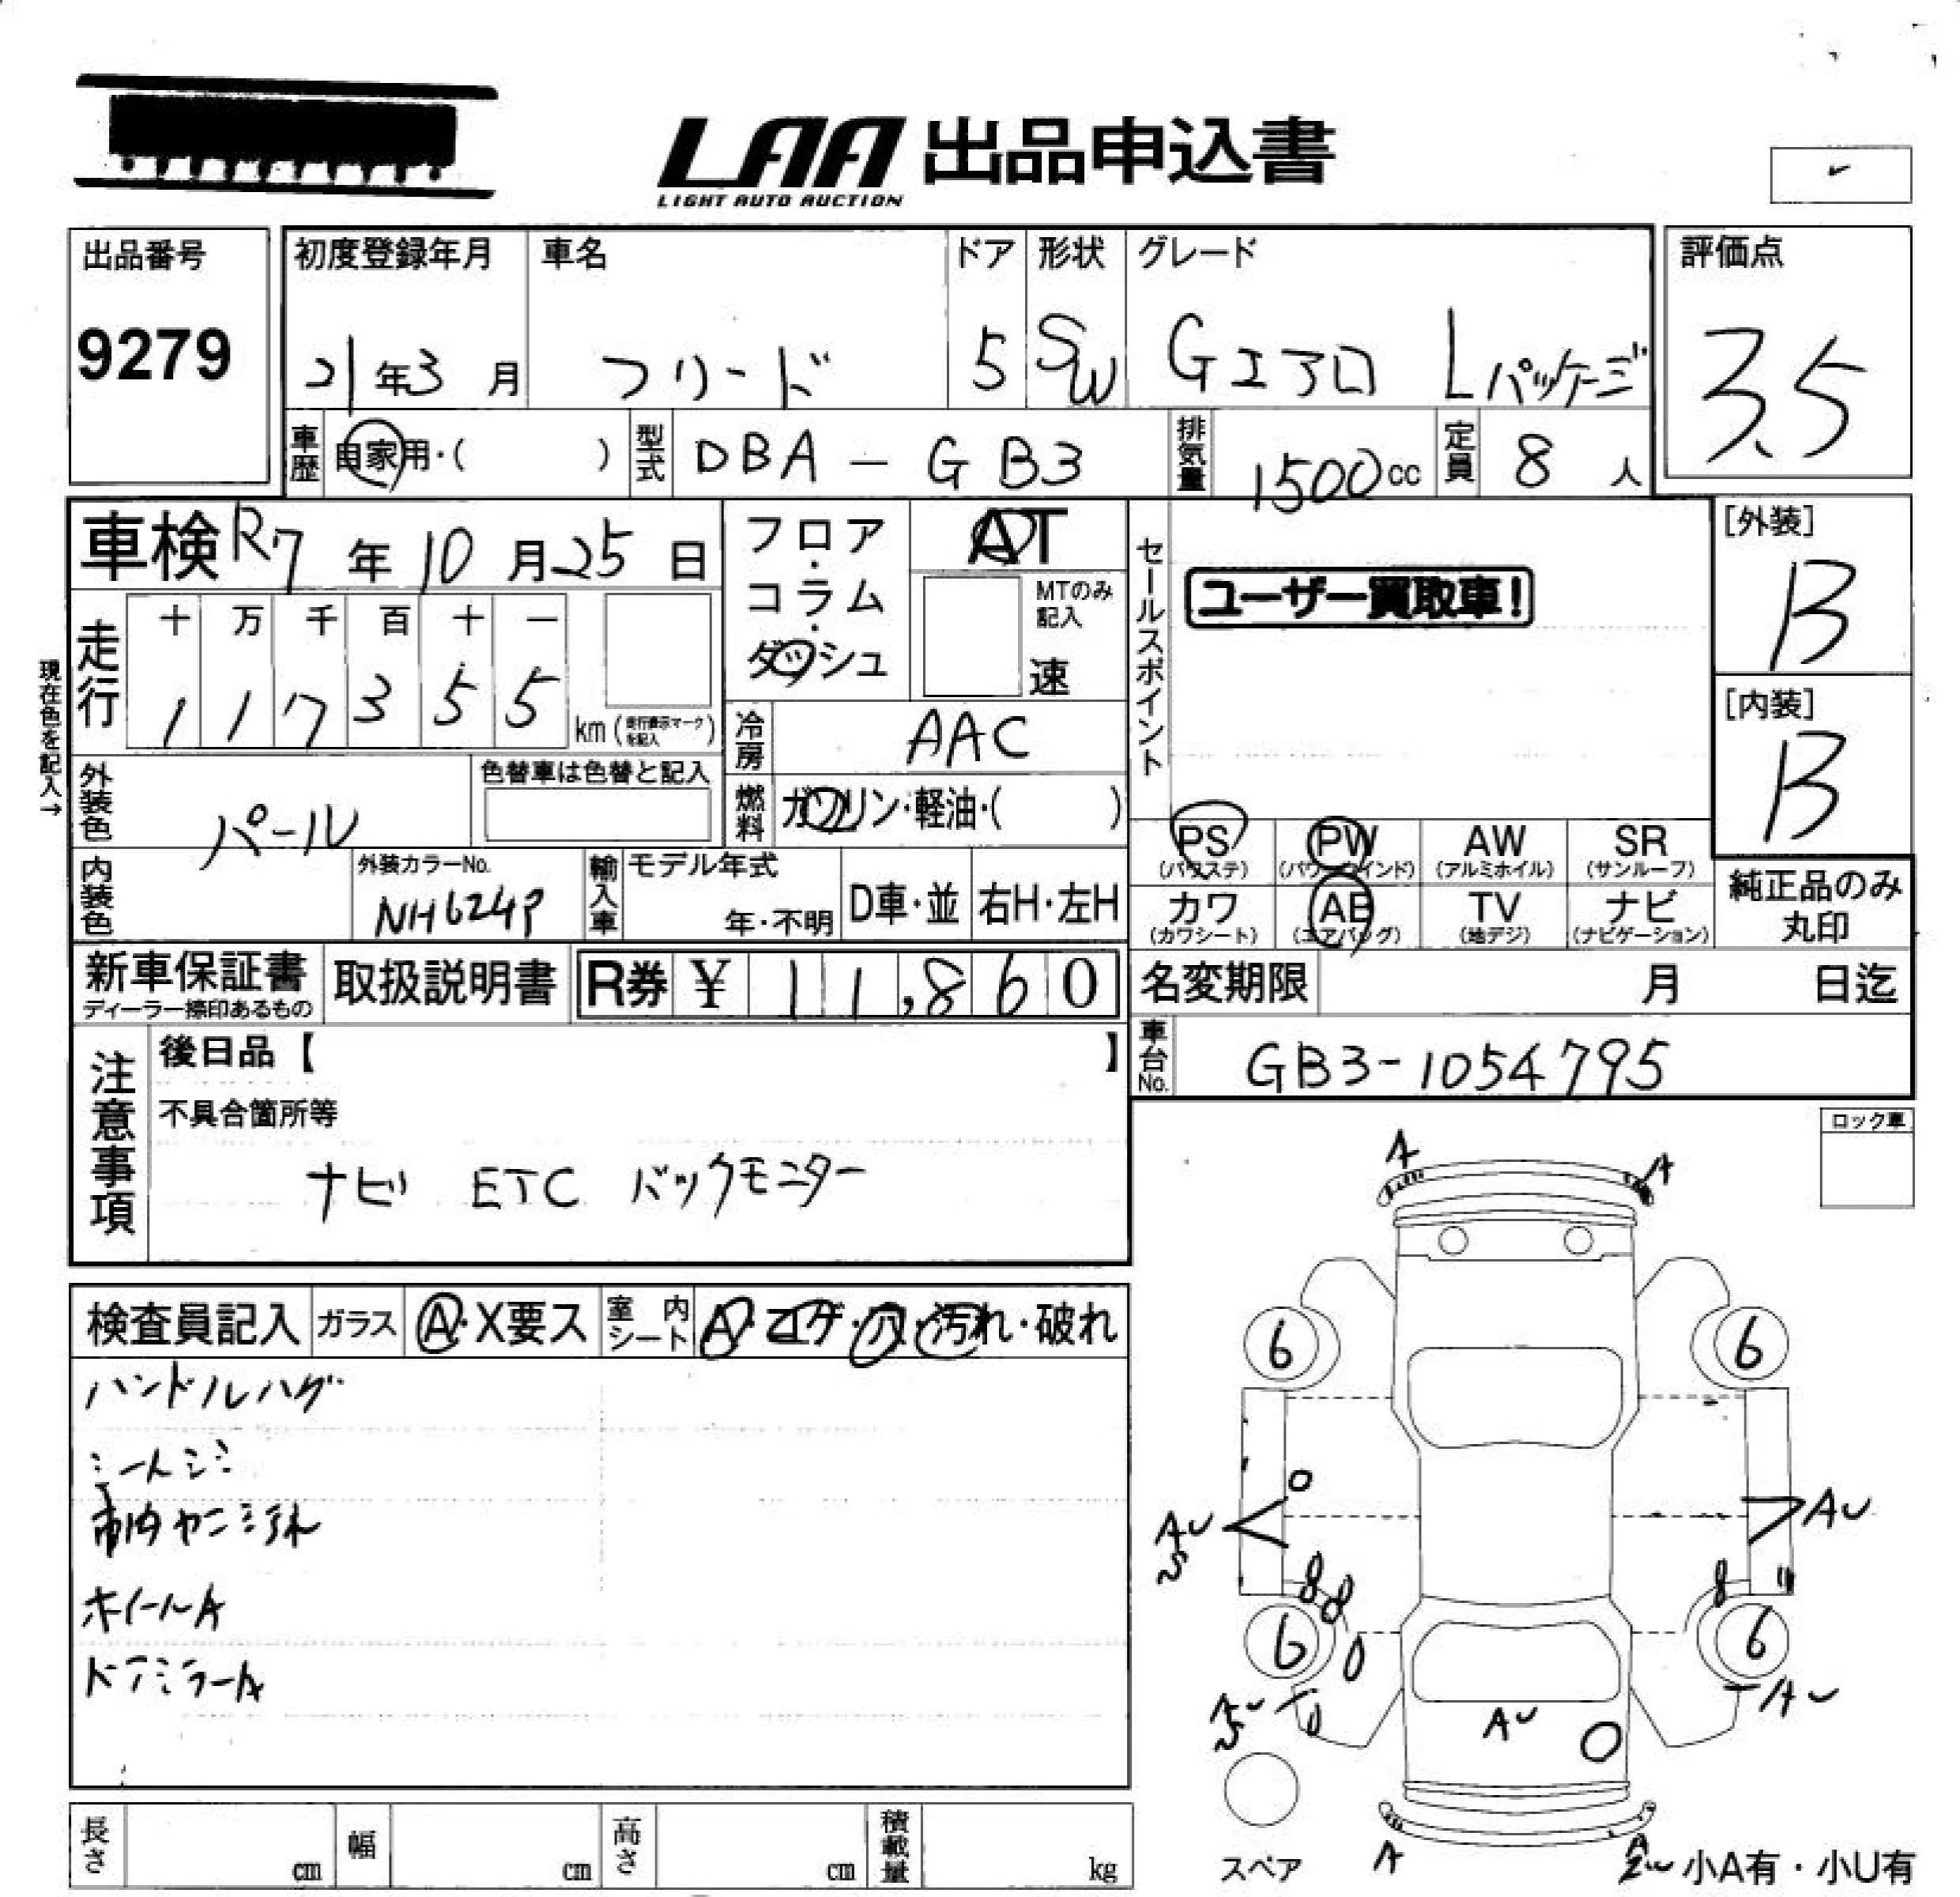 LAA 出品申込書
LIGHT AUTO AUCTION
出品番号
9279
初度登録年月
21年3月
車名
フリード
ドア
5
形状
SW
グレード
Gエアロ Lパッケージ
評価点
3.5
車歴
自家用・( )
型式
DBA-GB3
排気量
1500cc
定員
8人
車検 R7年10月25日
フロア・コラム・ダッシュ
AT
MTのみ記入
速
セールスポイント
ユーザー買取車!
[外装]
B
[内装]
B
現在色を記入→
走行
十 万 千 百 十 一
1 1 7 3 5 5
km(走行表示マークを記入)
冷房
AAC
外装色
パール
色替車は色替と記入
燃料
ガソリン・軽油・( )
内装色
外装カラーNo.
NH624P
輸入車
モデル年式
年・不明
D車・並
右H・左H
PS
(パワステ)
PW
(パワーウインド)
AW
(アルミホイル)
SR
(サンルーフ)
カワ
(カワシート)
AB
(エアバッグ)
TV
(地デジ)
ナビ
(ナビゲーション)
純正品のみ
丸印
新車保証書
ディーラー捺印あるもの
取扱説明書
R券 ¥ 11,860
名変期限 月 日迄
車台No.
GB3-1054795
注意事項
後日品【 】
不具合箇所等
ナビ ETC バックモニター
ロック車
検査員記入
ガラス
A・X要ス
室内シート
A・コゲ・穴・汚れ・破れ
ハンドルハゲ
シートシミ
車内ヤニ汚れ
ホイールA
ドアミラーA
A
A
6
6
AU
AU
6
6
AU
AU
AU
スペア
A
小A有・小U有
長さ cm
幅 cm
高さ cm
積載量 kg